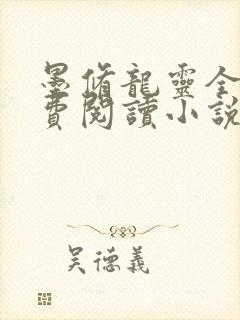 墨脩龍靈全
費閱讀小說
吴德義